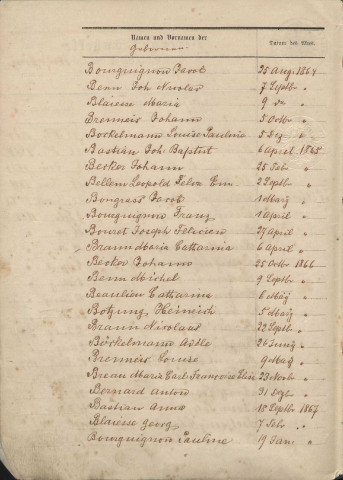 Namen und Vornamen der
Geborenen
Datum des Aktes.
Bourguignon Jacob 25 Aug. 1864
Benn Joh Nicolas 7 Septbr "
Blaiesse Maria 9 do "
Bremmeis Johann 5 Octbr "
Böckelmann Louise Pauline 5 Dez "
Bastian Joh Baptist 6 April 1865
Becker Johann 25 Febr "
Bellem Leopold Felix Em. 2 Septbr "
Bongrass Jacob 1 März "
Bourguignon Franz 1 April "
Bouret Joseph Felicien 27 April "
Braun Maria Catharina 6 April "
Becker Johann 25 Octbr 1866
Benn Michel 9 Septbr "
Beaulieu Catharina 6 März "
Botzung Heinrich 5 März "
Braun Nicolaus 22 Septbr "
Böckelmann Adele 26 Juny "
Bremmeis Louise 9 März "
Breau Maria Carl Françoise 23 Novbr "
Bernard Anton 31 Dezbr "
Bastian Anna 15 Septbr 1867
Blaiesse Georg 7 Febr "
Bourguignon Pauline 19 Jan "